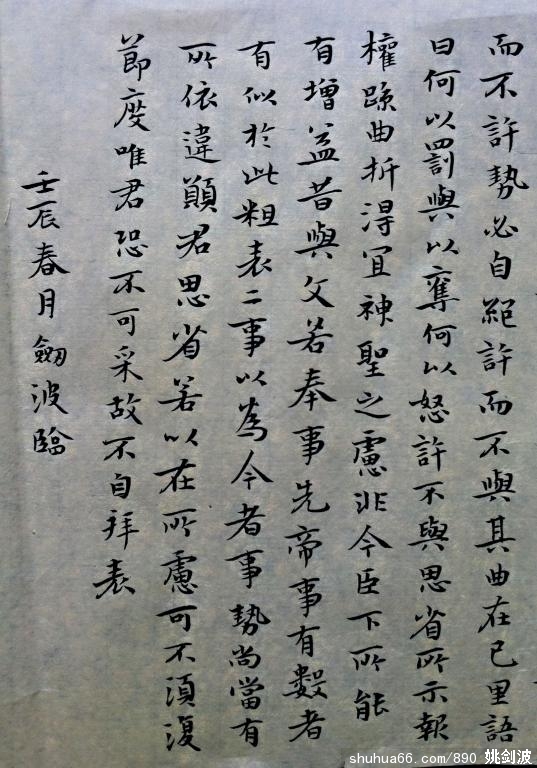 而不許勢必自絕許而不與其曲在己里語
曰何以罰與以奪何以怒許不與思省所示報
權疎曲折得宜神聖之慮非今臣下所能
有增益昔與文若奉事先帝事有數者
有似於此粗表二事以為今者事勢尚當有
所依違願君思省若以在所慮可不須復
節度唯君恐不可采故不自拜表
壬辰春月劒波臨
shuhua66.com/890 姚剑波